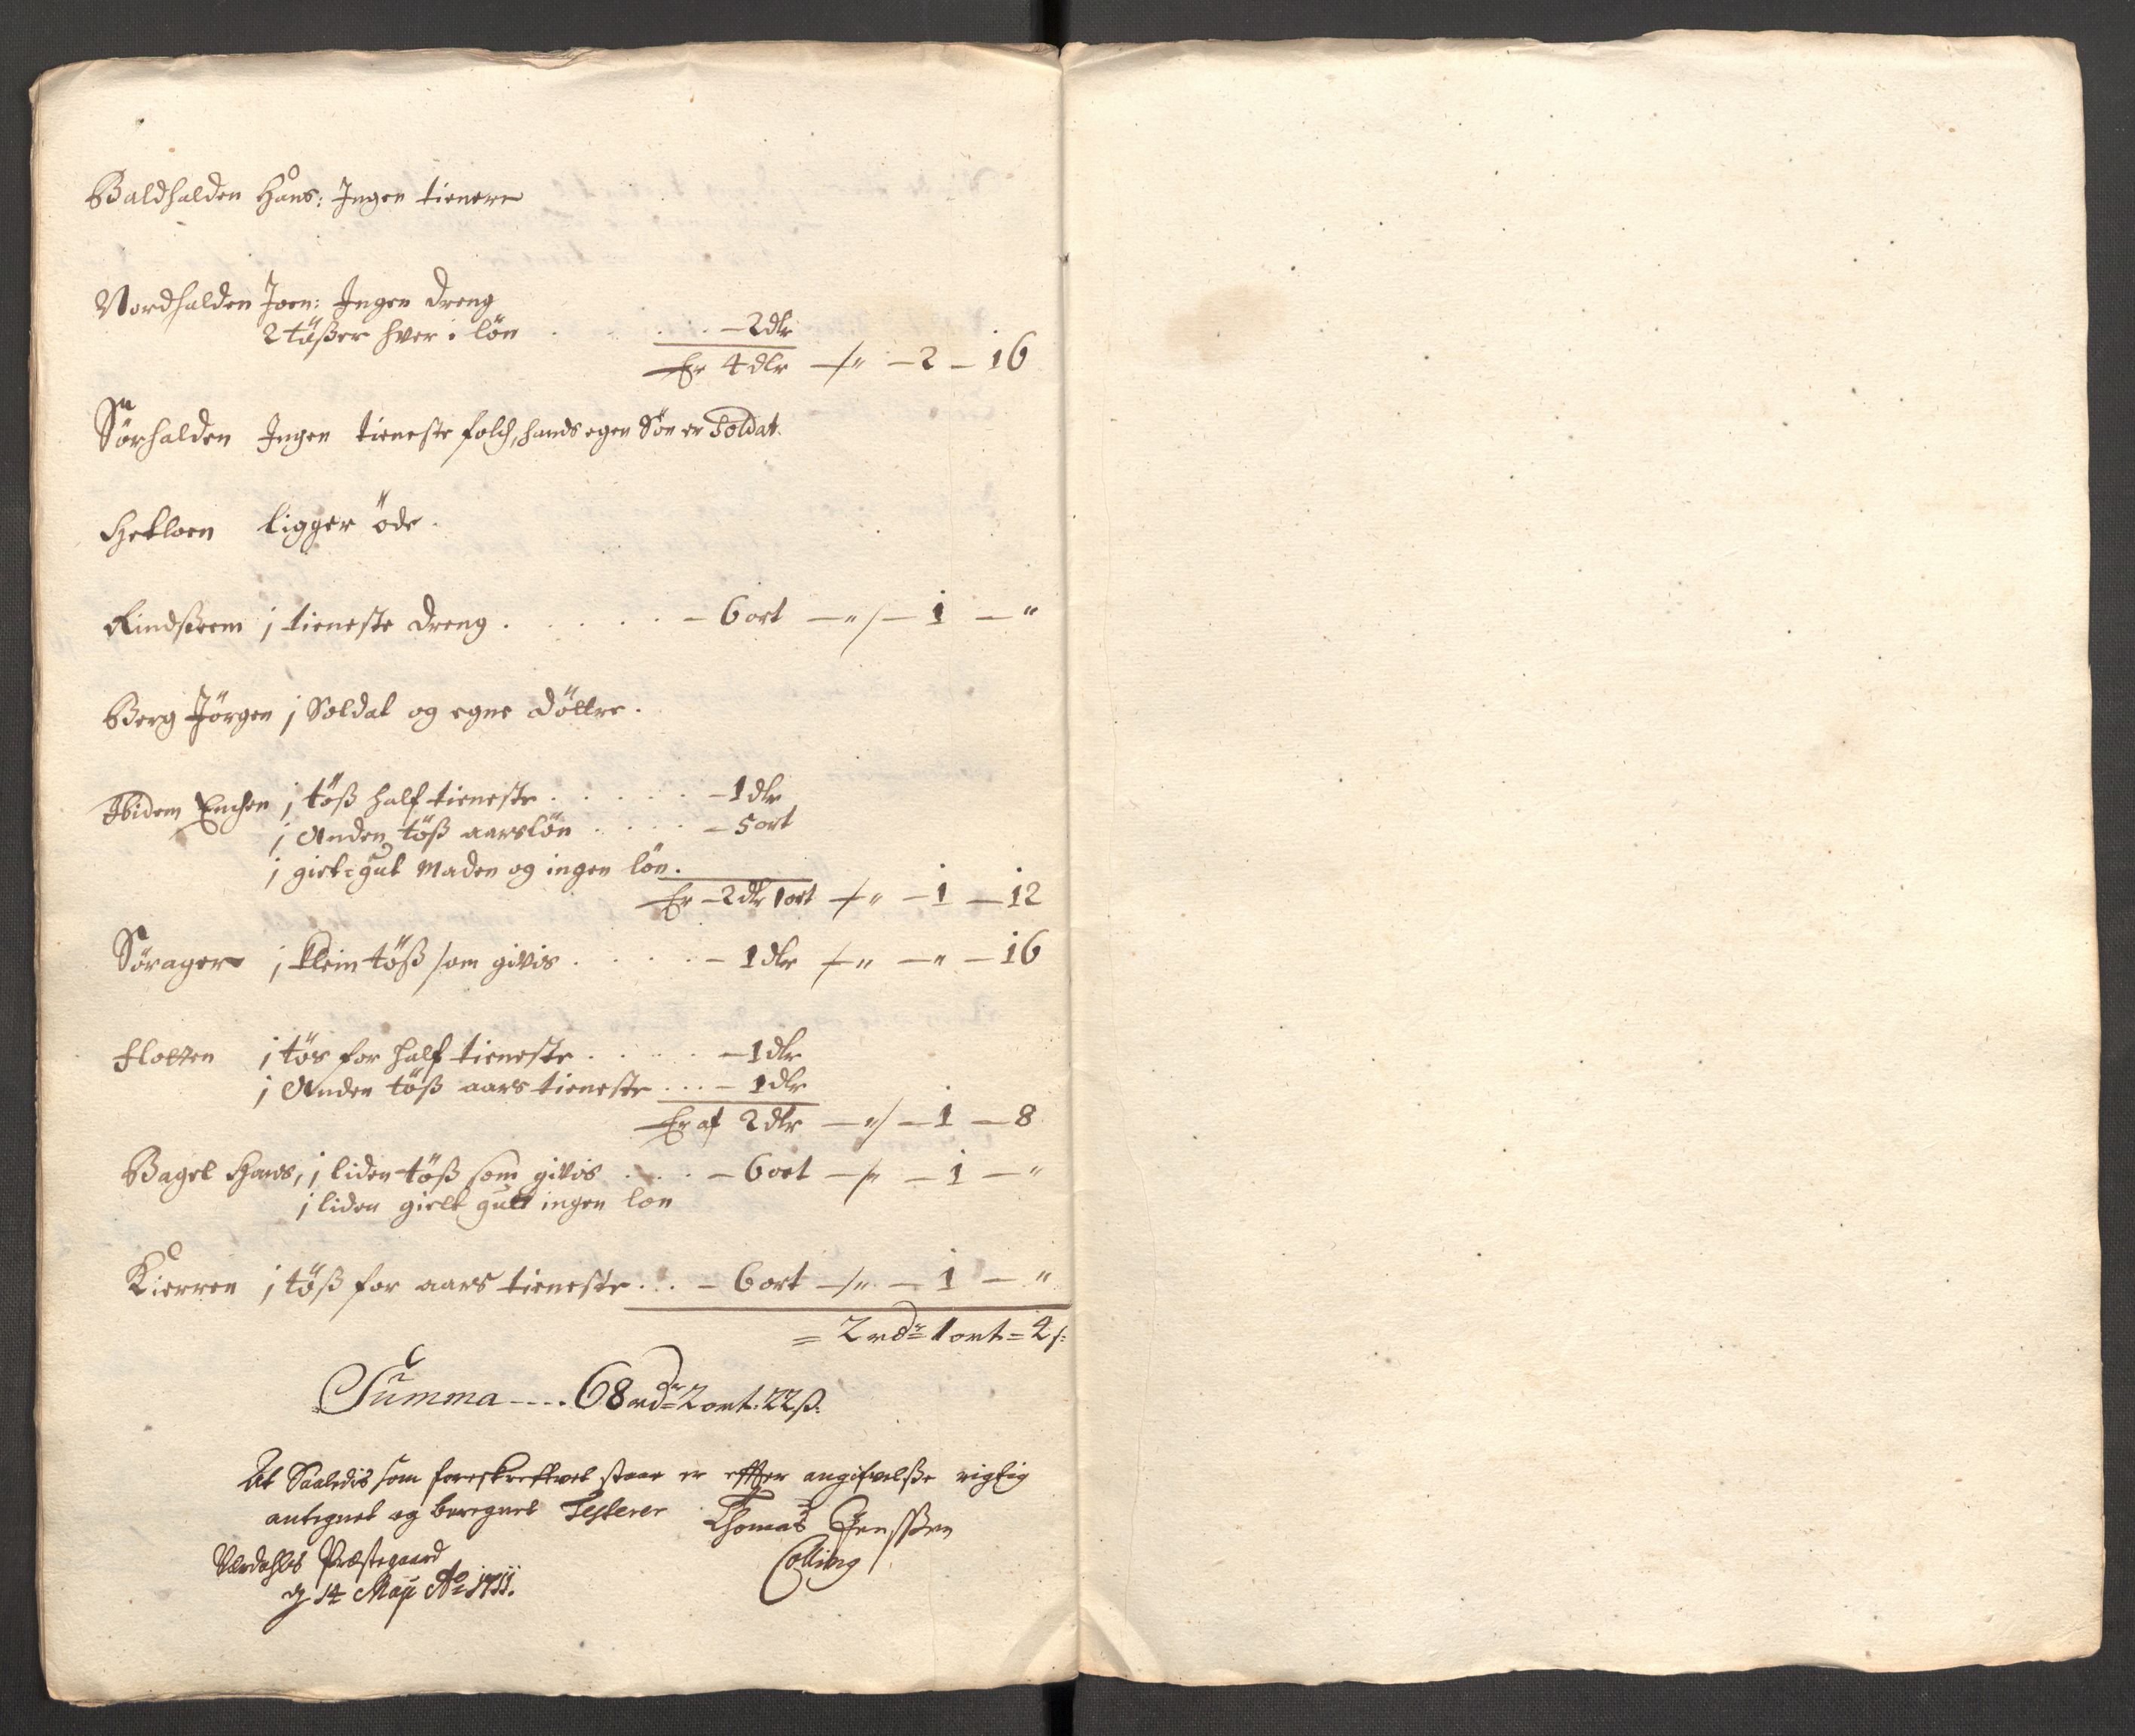 Baldhalden Hans: Ingen tienere
Nordhalden Joen: Ingen dreng
2 tößer hver i lön . . . . . – 2 dlr
Er 4 dlr –/" – 2 – 16
Sörhalden Ingen tieneste folch, hands egen Sön er Soldat.
ligger öde.
Rindsem j tieneste dreng . . . . . . – 6 ort – "/ – 1 – "
Berg Jörgen j Soldat og egne döttre.
Ibidem j töß half tieneste . . . . . – 1 dlr
j Anden töß aarslön . . . . – 5 ort
j giet-gut maden og ingen lön.
Er – 2 dlr 1 ort –/" – 1 – 12
Sörager j klein töß som givis . . . . – 1 dlr –/" – " – 16
j tös for half tieneste . . . . . – 1 dlr
j Anden töß aars tieneste . . . – 1 dlr
Er af 2 dlr – "/ – 1 – 8
Bagel Hans, j liden töß som givis . . . . – 6 ort –/" – 1 – "
j liden giett gutt ingen lon
Kierren j töß for aars tieneste . . . – 6 ort –/" – 1 – "
= 2 rdr = 1 ort = 4 s:
Summa - - - . 68 rdr 2 ort. 22 ß:
At Saaledis som foreskrefvet staar er effter angifvelße rigtig
antegnet og beregnet Testerer Thomas Jensßen
Collin
Værdahls Præstegaard
d 14 Maji Ao 1711.